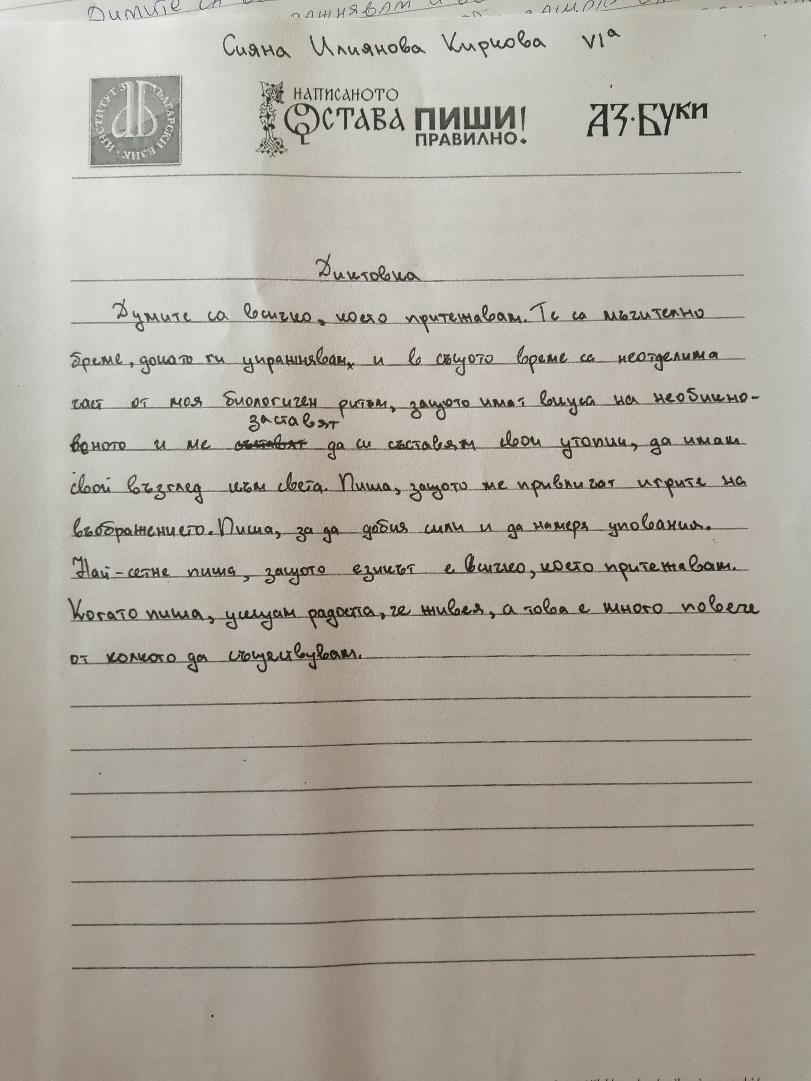 Сияна Илиянова Киркова VIа
ИНСТИТУТ ЗА БЪЛГАРСКИ ЕЗИК
НАПИСАНОТО
ОСТАВА ПИШИ!
ПРАВИЛНО.
АЗ·БУКИ
Диктовка
Думите са всичко, което притежавам. Те са мъчително
бреме, докато ги упражнявам, и в същото време са неотделима
част от моя биологичен ритъм, защото имат вкуса на необикно-
заставят
веното и ме съставят да си съставям свои утопии, да имам
свой възглед към света. Пиша, защото ме привличат игрите на
въображението. Пиша, за да добия сили и да намеря упования.
Най-сетне пиша, защото езикът е всичко, което притежавам.
Когато пиша, усещам радостта, че живея, а това е много повече
от колкото да съществувам.